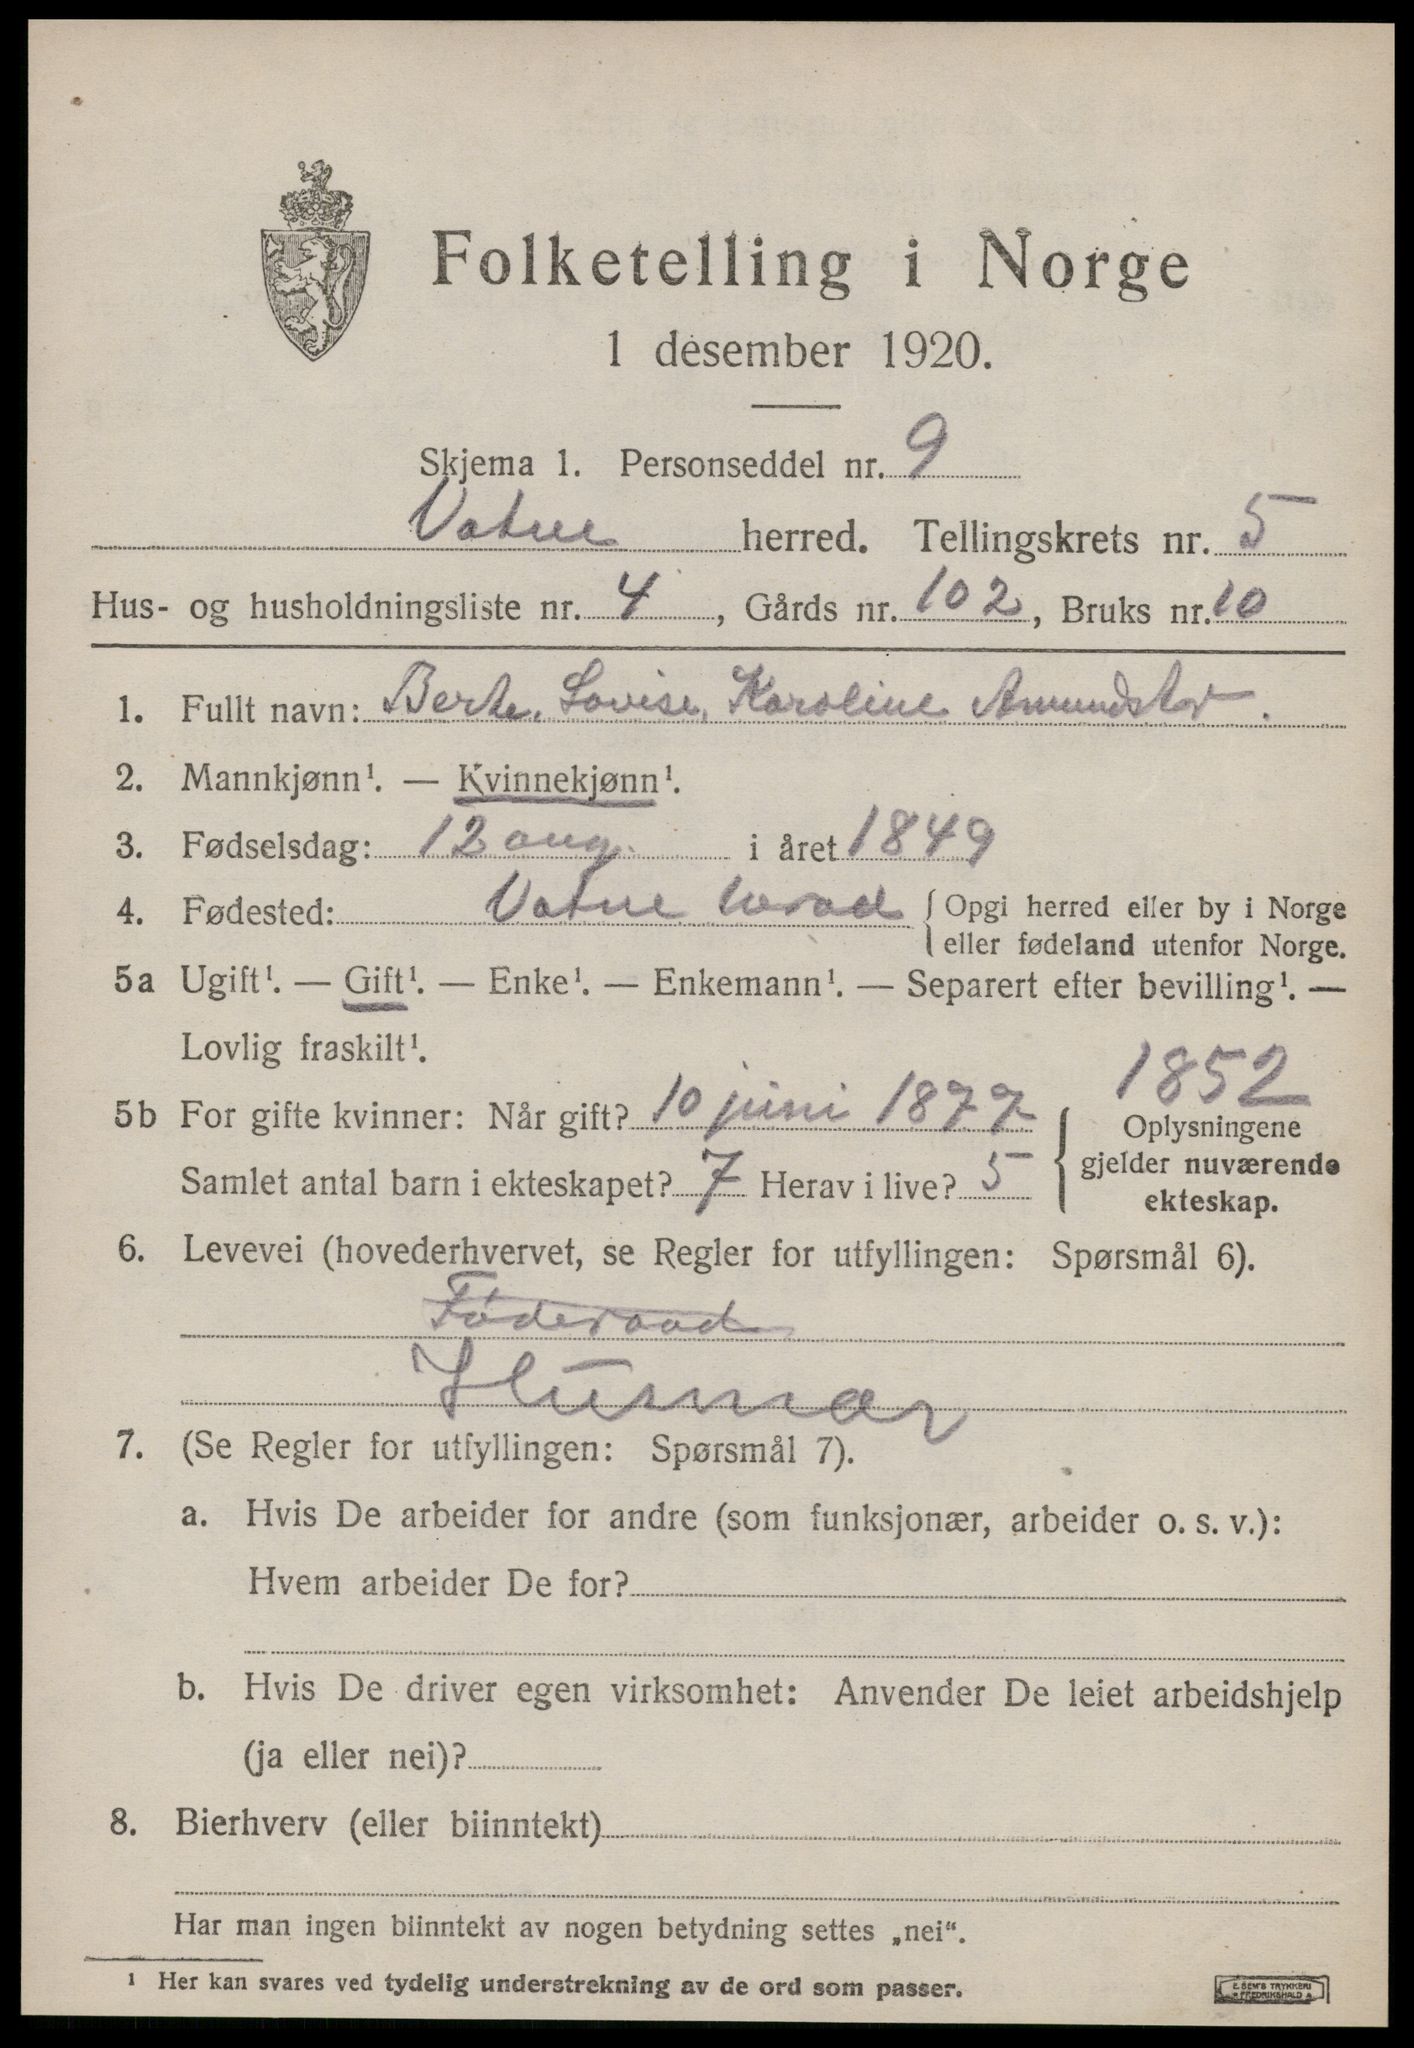 Folketelling i Norge
1 desember 1920.
Skjema 1. Personseddel nr. 9
Vatne herred. Tellingskrets nr. 5
Hus- og husholdningsliste nr. 4, Gårds nr. 102, Bruks nr. 10
1. Fullt navn: Berte, Lovise, Karoline Amundstar.
2. Mannkjønn¹. — Kvinnekjønn¹.
3. Fødselsdag: 12 aug. i året 1849
4. Fødested: Vatne herad {Opgi herred eller by i Norge
eller fødeland utenfor Norge.
5a Ugift¹. — Gift¹. — Enke¹. — Enkemann¹. — Separert efter bevilling¹. —
Lovlig fraskilt¹.
1852
5b For gifte kvinner: Når gift? 10 juni 1877
Samlet antal barn i ekteskapet? 7 Herav i live? 5
{Oplysningene
gjelder nuværende
ekteskap.
6. Levevei (hovederhvervet, se Regler for utfyllingen: Spørsmål 6).
Føderaad
Husmor
7. (Se Regler for utfyllingen: Spørsmål 7).
a. Hvis De arbeider for andre (som funksjonær, arbeider o. s. v.):
Hvem arbeider De for?
b. Hvis De driver egen virksomhet: Anvender De leiet arbeidshjelp
(ja eller nei)?
8. Bierhverv (eller biinntekt)
Har man ingen biinntekt av nogen betydning settes „nei“.
¹ Her kan svares ved tydelig understrekning av de ord som passer.
E. SEM'S TRYKKERI
FREDRIKSHALD